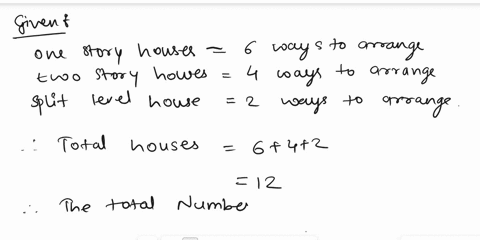 Given:
one story houses = 6 ways to arrange
two story houses = 4 ways to arrange
split level house = 2 ways to arrange.
∴ Total houses = 6+4+2
= 12
∴ The total Number